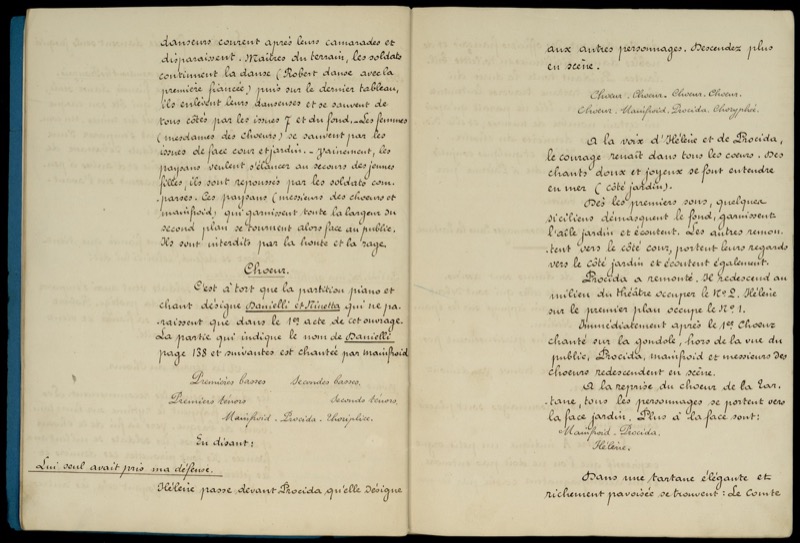 danseurs courent après leurs camarades et
disparaissent. Maîtres du terrain, les soldats
continuent la danse (Robert danse avec la
première fiancée) puis sur le dernier tableau,
ils enlèvent leurs danseuses et se sauvent de
tous côtés par les issues 7 et du fond. _ Les femmes
(mesdames des choeurs) se sauvent par les
issues de face cour et jardin. _ Vainement, les
paysans veulent s'élancer au secours des jeunes
filles; ils sont repoussés par les soldats com-
parses. Ces paysans (messieurs des choeurs et
mainfroid) qui garnissent toute la largeur du
second plan se tournent alors face au public.
Ils sont interdits par la honte et la rage.
Choeur.
C'est à tort que la partition piano et
chant désigne Danielli et Ninetta qui ne pa-
raissent que dans le 1er acte de cet ouvrage.
La partie qui indique le nom de Danielli
page 138 et suivantes est chantée par mainfroid
Premières basses Secondes basses.
Premiers ténors Seconds ténors.
Mainfroid. Procida. Choriphée.
En disant:
Lui seul avait pris ma défense.
Hélène passe devant Procida qu'elle désigne
aux autres personnages. Descendez plus
en scène.
Choeur. Choeur. Choeur. Choeur.
Choeur. Mainfroid. Procida. Choryphé.
A la voix d'Hélène et de Procida,
le courage renaît dans tous les coeurs. Des
chants doux et joyeux se font entendre
en mer (côté jardin).
Dès les premiers sons, quelques
siciliens démasquent le fond, garnissent
l'aile jardin et écoutent. Les autres remon-
tent vers le côté cour, portent leurs regards
vers le côté jardin et écoutent également.
Procida a remonté. Il redescend au
milieu du théâtre occuper le No 2. Hélène
sur le premier plan occupe le No 1.
Immédiatement après le 1er Choeur
chanté sur la gondole, hors de la vue du
public, Procida, mainfroid et messieurs des
choeurs redescendent en scène.
A la reprise du choeur de la Tar-
tane, tous les personnages se portent vers
la face jardin. Plus à la face sont:
Mainfroid. Procida.
Hélène.
Dans une tartane élégante et
richement pavoisée se trouvent: Le Comte